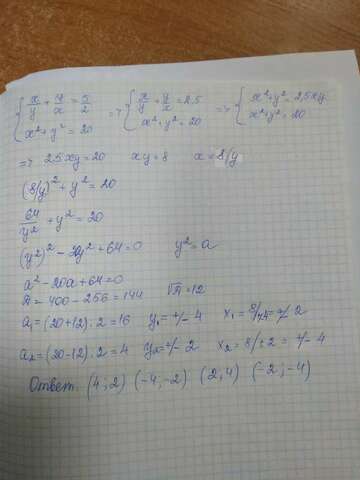 { x/y + y/x = 5/2 => { x/y + y/x = 2.5 => { x²+y² = 2,5xy
x²+y² = 20 x²+y² = 20 x²+y² = 20
=> 2.5xy = 20 xy = 8 x = 8/y
(8/y)² + y² = 20
64/y² + y² = 20
(y²)² - 20y² + 64 = 0 y² = a
a² - 20a + 64 = 0
D = 400 - 256 = 144 √D = 12
a₁ = (20+12) : 2 = 16 y₁ = +/- 4 x₁ = 8/±4 = +/- 2
a₂ = (20-12) : 2 = 4 y₂ = +/- 2 x₂ = 8/±2 = +/- 4
Ответ. (4; 2) (-4; -2) (2, 4) (-2; -4)